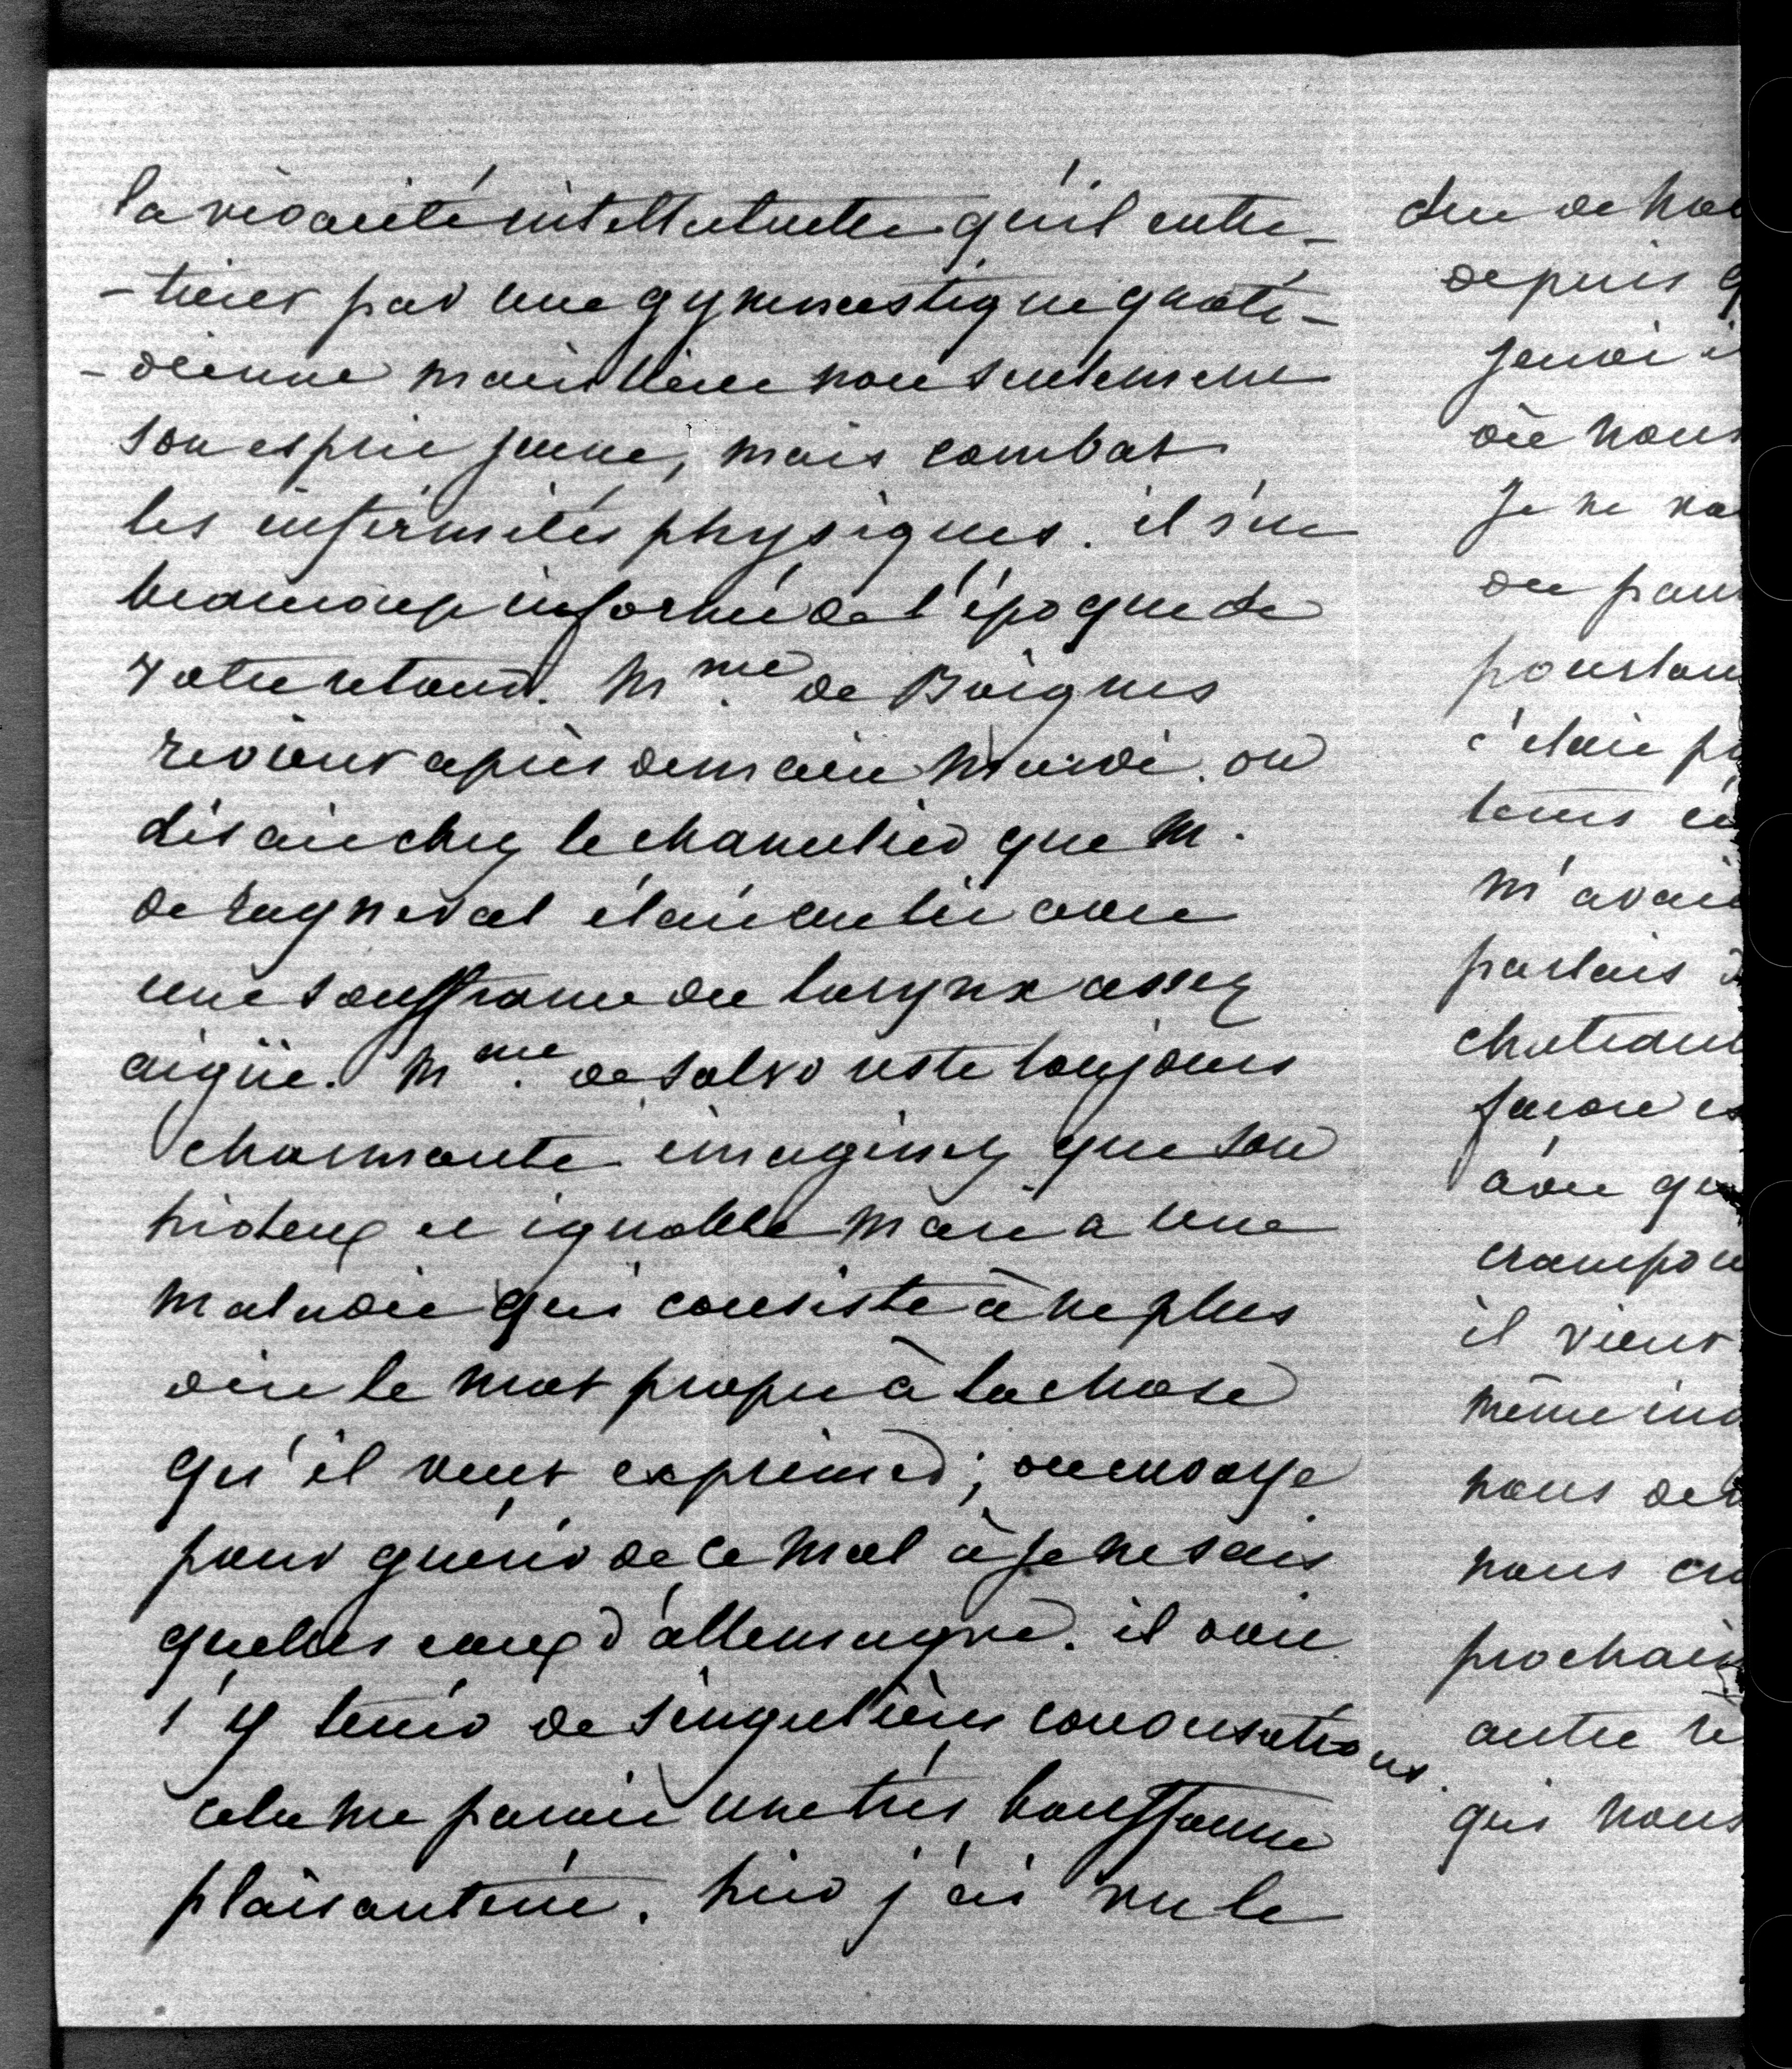 la vivacité intellectuelle qu'il entre-
-tient par une gymnastique quoti-
-dienne maintient non seulement
son esprit jeune, mais combat
les infirmités physiques. il s'est
beaucoup informé de l'époque de
votre retour. Mme. de Boignes
revient après demain mardi. on
disait chez le chancelier que M.
de Rayneval était au lit avec
une souffrance du larynx assez
aigüe. Mme. de Salvo reste toujours
charmante imaginez que son
hideux et ignoble mari a une
maladie qui consiste à ne plus
dire le mot propre à la chose
qu'il veut exprimer; on envoye
pour guérir de ce mal à je ne sais
quelles eaux d'allemagne. il doit
s'y tenir de singulières conversations.
cela me parait une très bouffonne
plaisanterie. hier j'ai vu le
duc de
depuis
jeudi
où nous
Je ne
du
pourtant
c'était
tems
m'avait
parlais
favori
avec
il vient
même
nous
nous
prochain
autre
qui nous